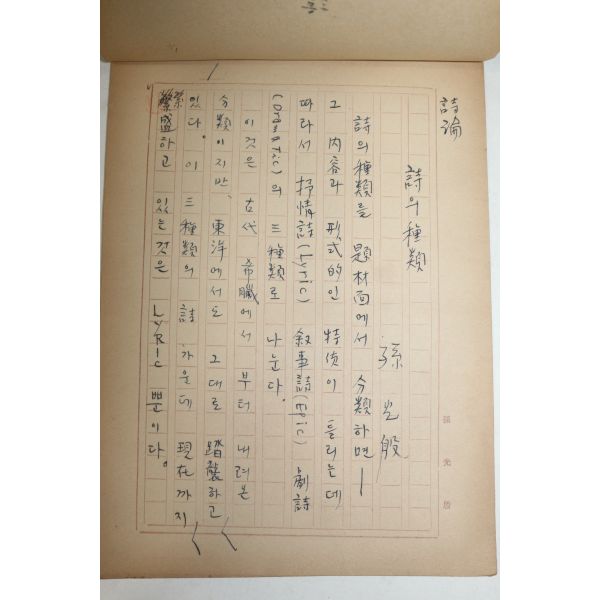 詩論
詩의 種類
孫光殷
詩의 種類를 題材面에서 分類하면—
그 內容과 形式的인 特质이 틀리는데
따라서 抒情詩(Lyric) 叙事詩(Epic) 劇詩
(Dramatic)의 三種類로 나눈다.
이것은 古代 希臘에서 부터 내려온
分類이지만, 東洋에서도 그대로 踏襲하고
있다. 이 三種類의 詩 가운데 現在까지
繁盛하고 있는 것은 LyRic 뿐이다.
孫光殷